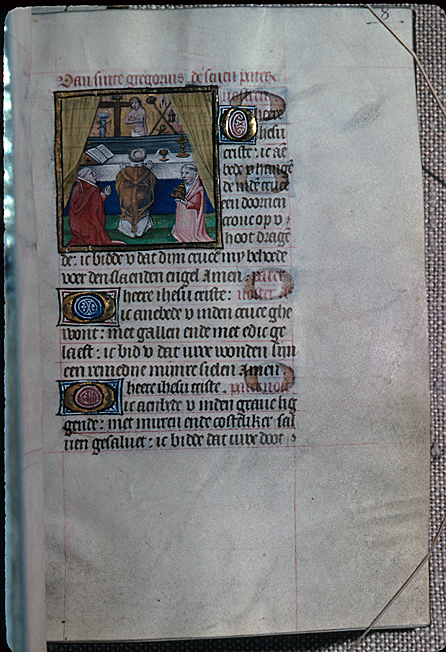 8
Van sinte gregorius de seuen pater
nostren
O heere
ihesu
criste : ic aē
bede v hangē
de indē cruce
een doornen
crone op v
hooft dragē
de : ic bidde v dat dijn cruce my behoede
voer den slaenden engel Amen : pater
O heere ihesu criste : noster
ic aenbede v inden cruce ghe
wont : met gallen ende met edic ge
laeft : ic bid v dat uwe wonden sijn
een remedie mijnre sielen Amen
O heere ihesu criste . pater nost
ic aenbede v inden graue lig
gende : met mirren ende costelijker sal
uen gesaluet : ic bidde dat uwe doot